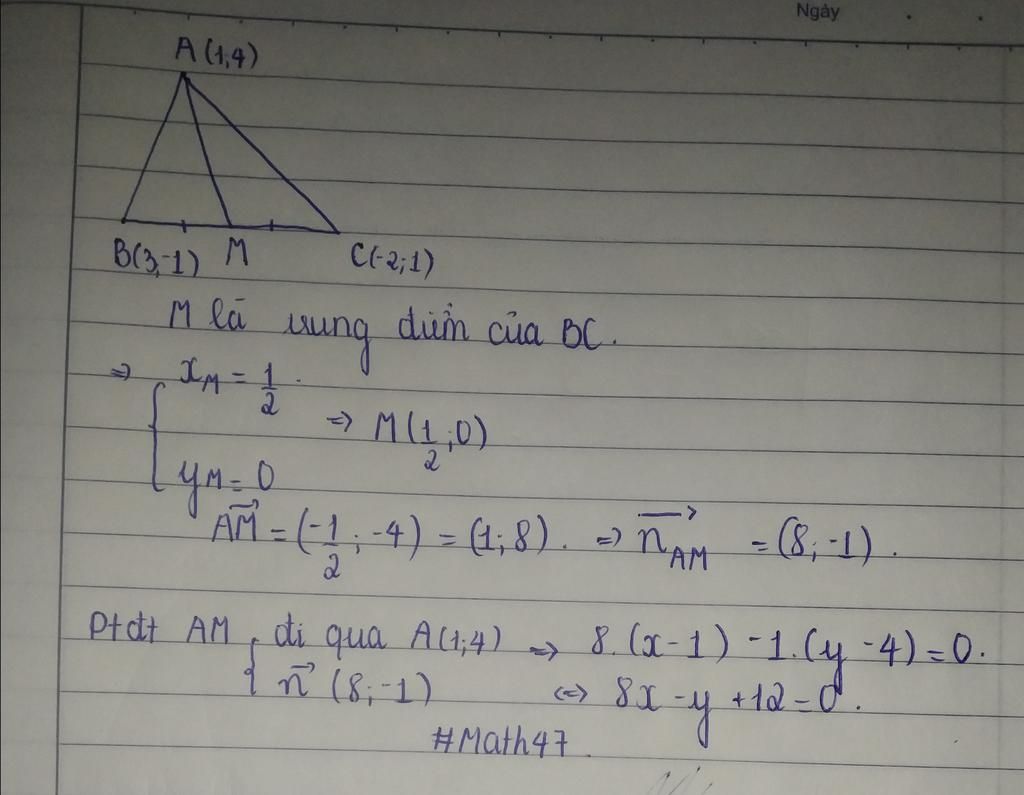 Ngày
A(1;4)
B(3;-1) M C(-2;1)
M là trung điểm của BC.
⇒ { x_M = 1/2 .
y_M = 0 ⇒ M(1/2;0)
\overrightarrow{AM} = (-1/2; -4) = (1; 8). ⇒ \overrightarrow{n_{AM}} = (8; -1).
Ptđt AM { đi qua A(1;4) ⇒ 8.(x-1) -1.(y-4)=0.
\vec{n} (8;-1) <=> 8x - y +12=0.
#Math47